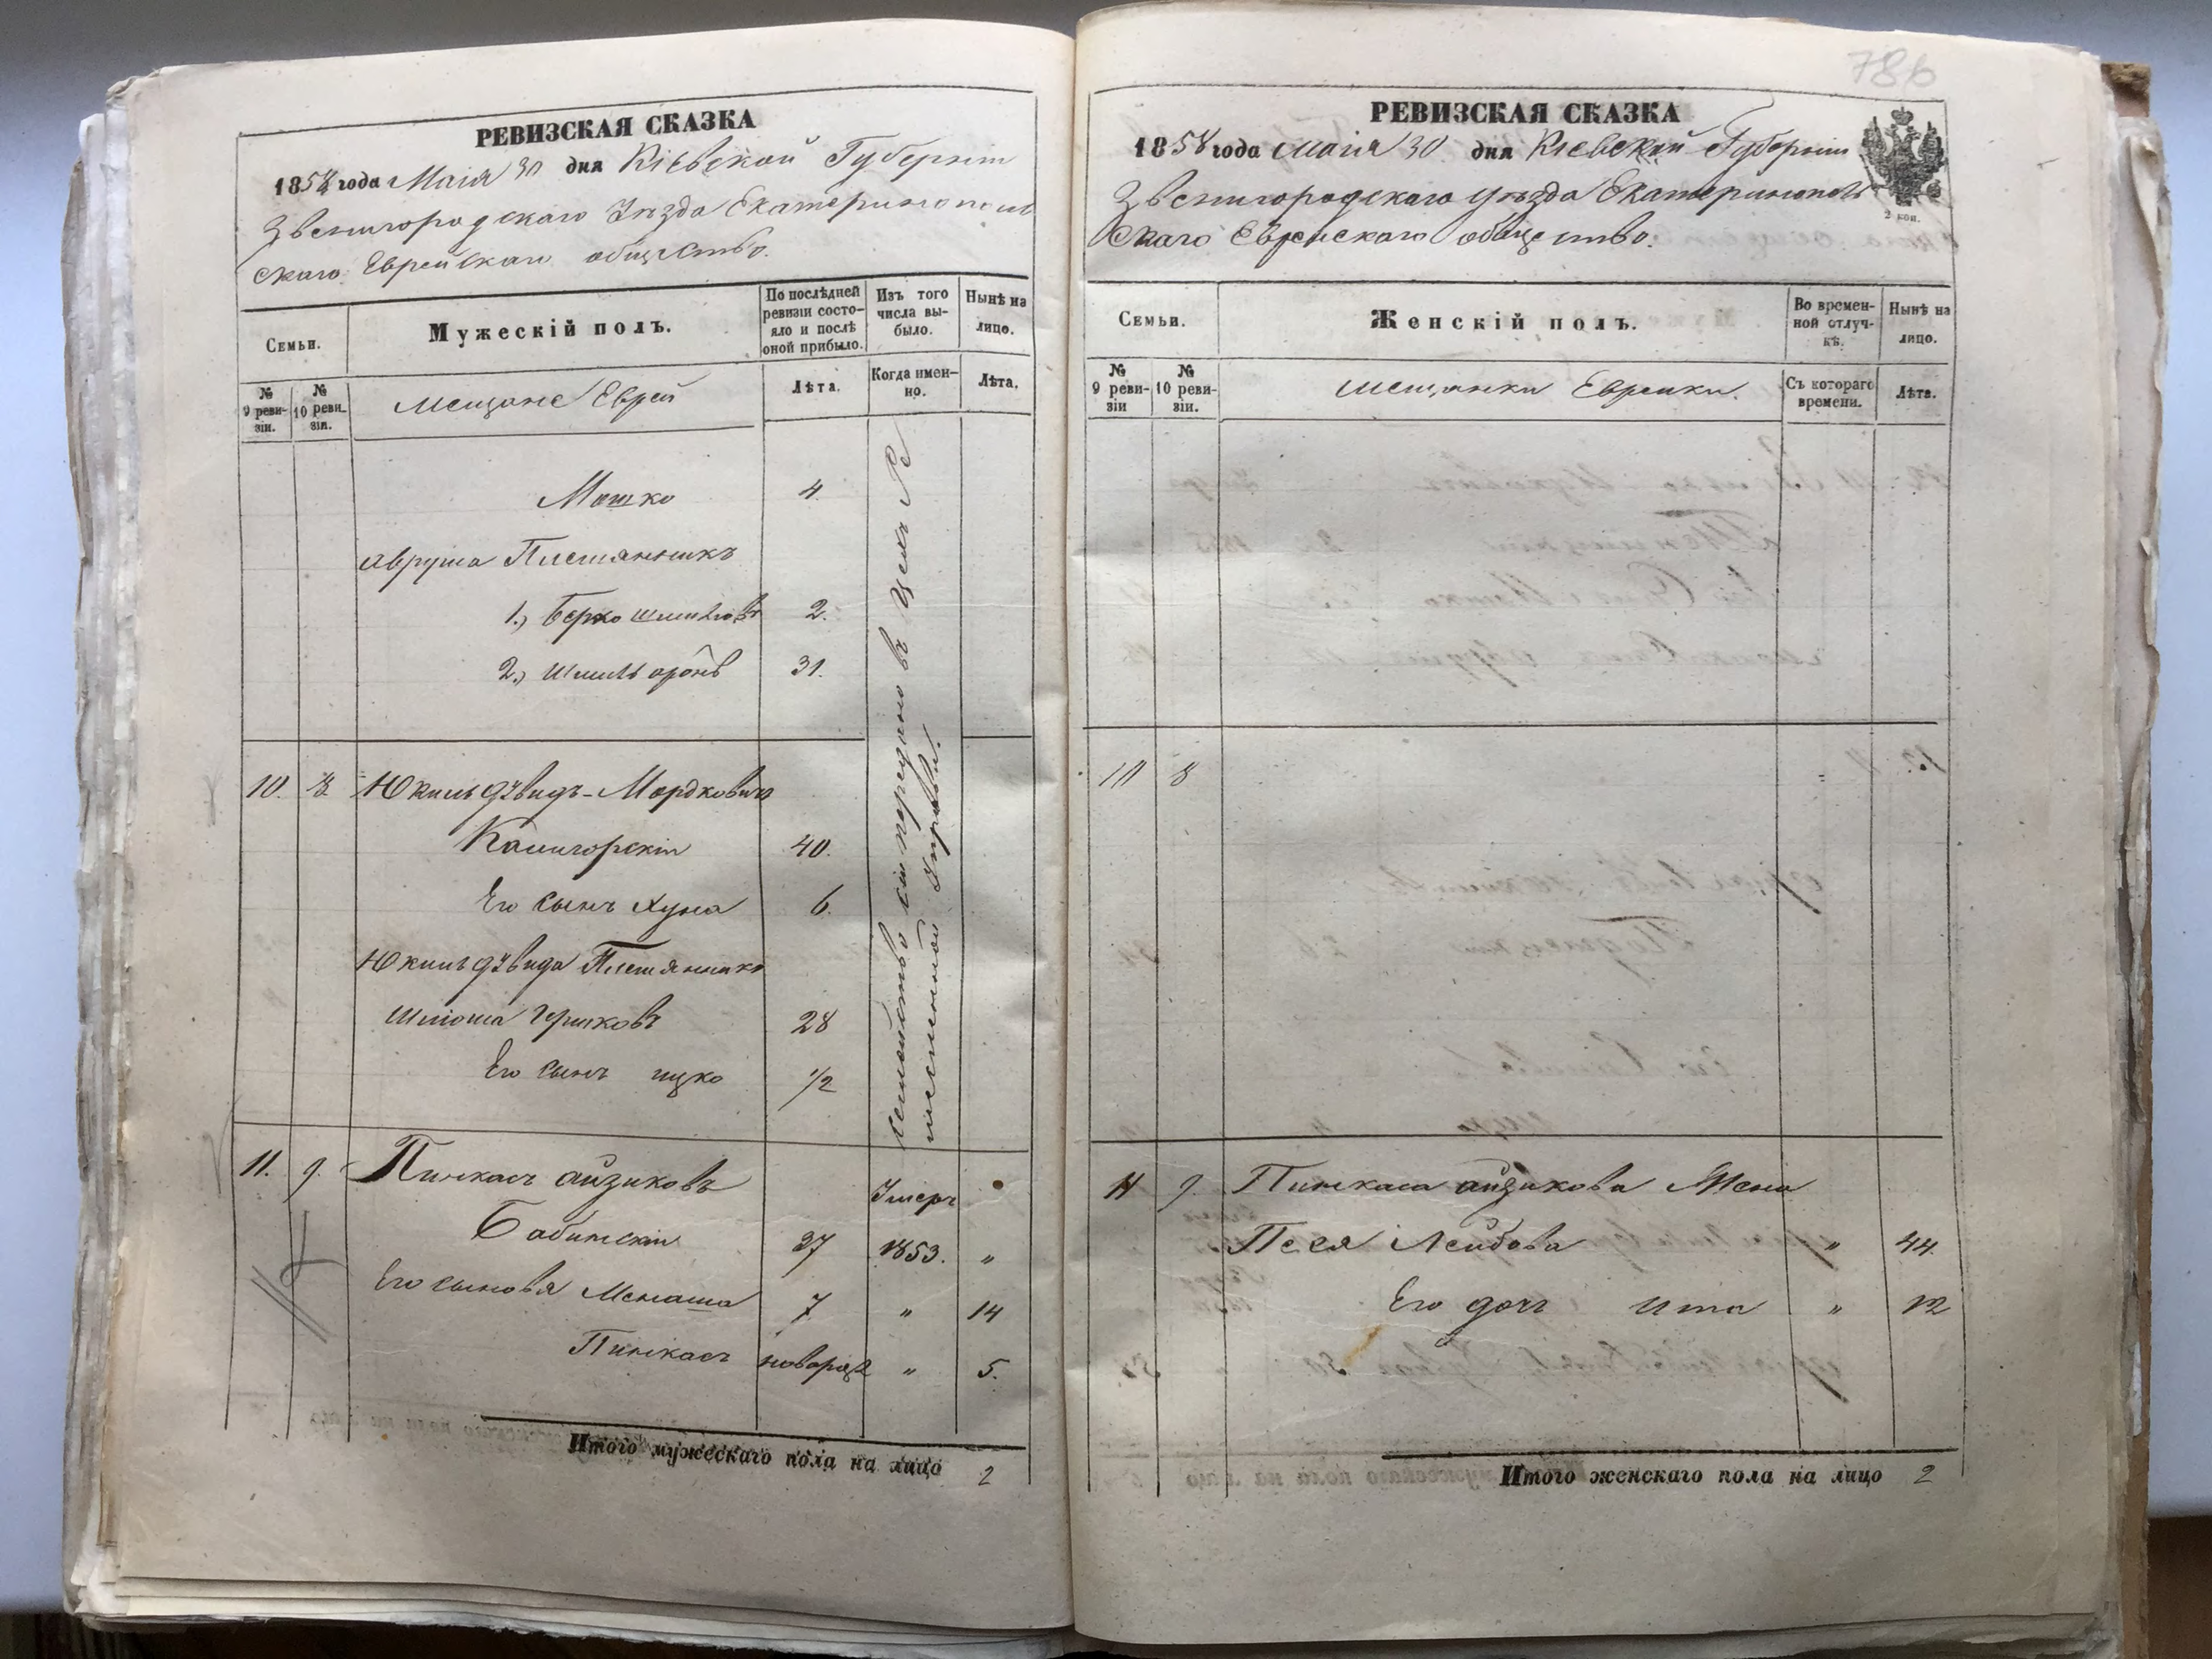 РЕВИЗСКАЯ СКАЗКА
1858 года Маія 30 дня Кіевской Губерніи
Звенигородскаго Уѣзда Екатеринополь
скаго Еврейскаго общества.
Семьи.
Мужескій полъ.
По послѣдней ревизіи состояло и послѣ оной прибыло.
Изъ того числа выбыло.
Нынѣ на лицо.
№ 9 ревизіи.
№ 10 ревизіи.
Мещане Евреи
Лѣта.
Когда именно.
Лѣта.
Мошко 4
Аврума Племянникъ
1.) Берко Шмилковъ 2.
2.) Шмиль 31.
10. 8. Юкиль Дувидъ-Мордковичъ
Канигорскій 40.
Его сынъ Хуна 6.
Юкиль Дувида Племянникъ
Шліома Гершковъ 28
Его сынъ Ицко 1/2
семейство сіе передано въ
письменной
11. 9. Пинкасъ Айзиковъ Умеръ
Бабинскій 37 1853. „
Его сыновья Менаша 7 „ 14
Пинкасъ новорож „ 5.
Итого мужескаго пола на лицо 2
786
РЕВИЗСКАЯ СКАЗКА
1858 года Маія 30 дня Кіевской Губерніи
Звенигородскаго Уѣзда Екатеринополь
скаго Еврейскаго общества.
2 коп.
Семьи.
Женскій полъ.
Во временной отлучкѣ.
Нынѣ на лицо.
№ 9 ревизіи
№ 10 ревизіи.
Мещанки Еврейки.
Съ котораго времени.
Лѣта.
10 8
11 9. Пинкаса Айзикова Жена
Песя Лейбова „ 44.
Его дочь Ита „ 12
Итого женскаго пола на лицо 2